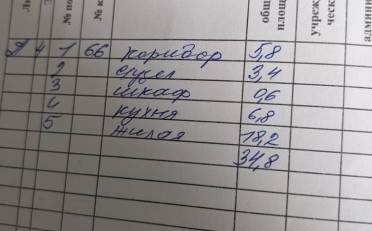 № по
№ к
общ
площа
учреж
ческ
админи
2 4 1 66 коридор 5,8
2 санузел 3,4
3 шкаф 0,6
4 кухня 6,8
5 жилая 18,2
34,8